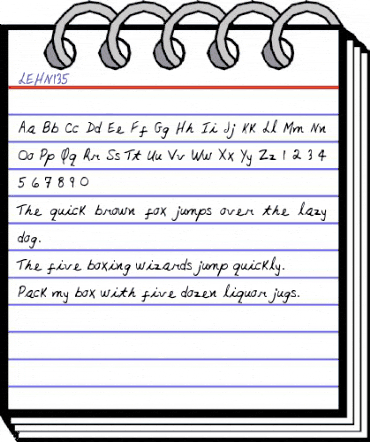 LEHN135
Aa Bb Cc Dd Ee Ff Gg Hh Ii Jj Kk Ll Mm Nn
Oo Pp Qq Rr Ss Tt Uu Vv Ww Xx Yy Zz 1 2 3 4
5 6 7 8 9 0
The quick brown fox jumps over the lazy
dog.
The five boxing wizards jump quickly.
Pack my box with five dozen liquor jugs.